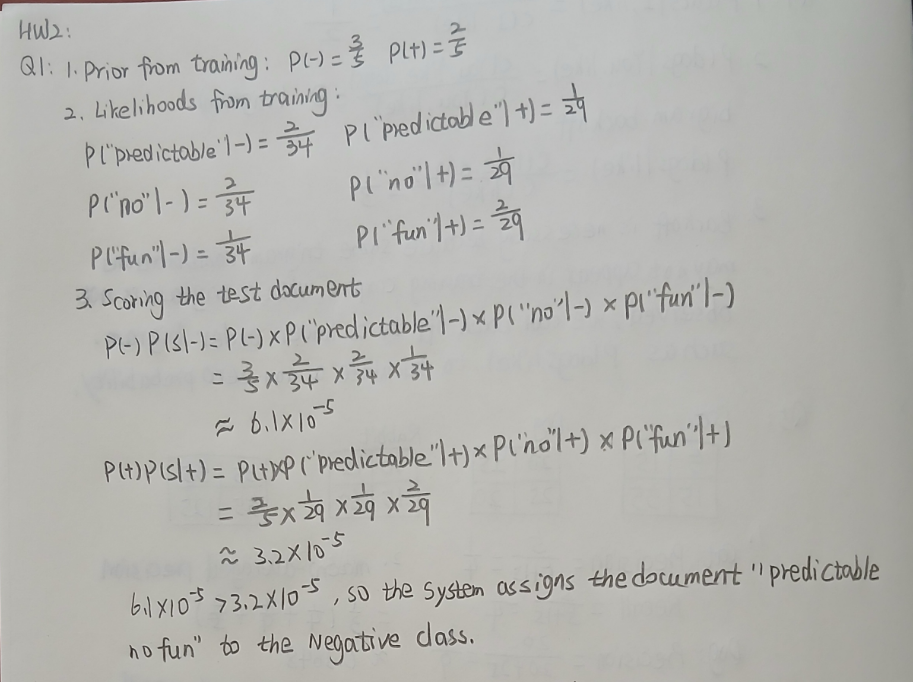 HW2:
Q1: 1. Prior from training: P(-) = 3/5 P(+) = 2/5
2. Likelihoods from training:
P("predictable"|-) = 2/34 P("predictable"|+) = 1/29
P("no"|-) = 2/34 P("no"|+) = 1/29
P("fun"|-) = 1/34 P("fun"|+) = 2/29
3. Scoring the test document
P(-) P(s|-) = P(-) × P("predictable"|-) × P("no"|-) × P("fun"|-)
= 3/5 × 2/34 × 2/34 × 1/34
≈ 6.1×10⁻⁵
P(+)P(s|+) = P(+)×P("predictable"|+) × P("no"|+) × P("fun"|+)
= 2/5 × 1/29 × 1/29 × 2/29
≈ 3.2×10⁻⁵
6.1×10⁻⁵ > 3.2×10⁻⁵, so the system assigns the document "predictable
no fun" to the Negative class.